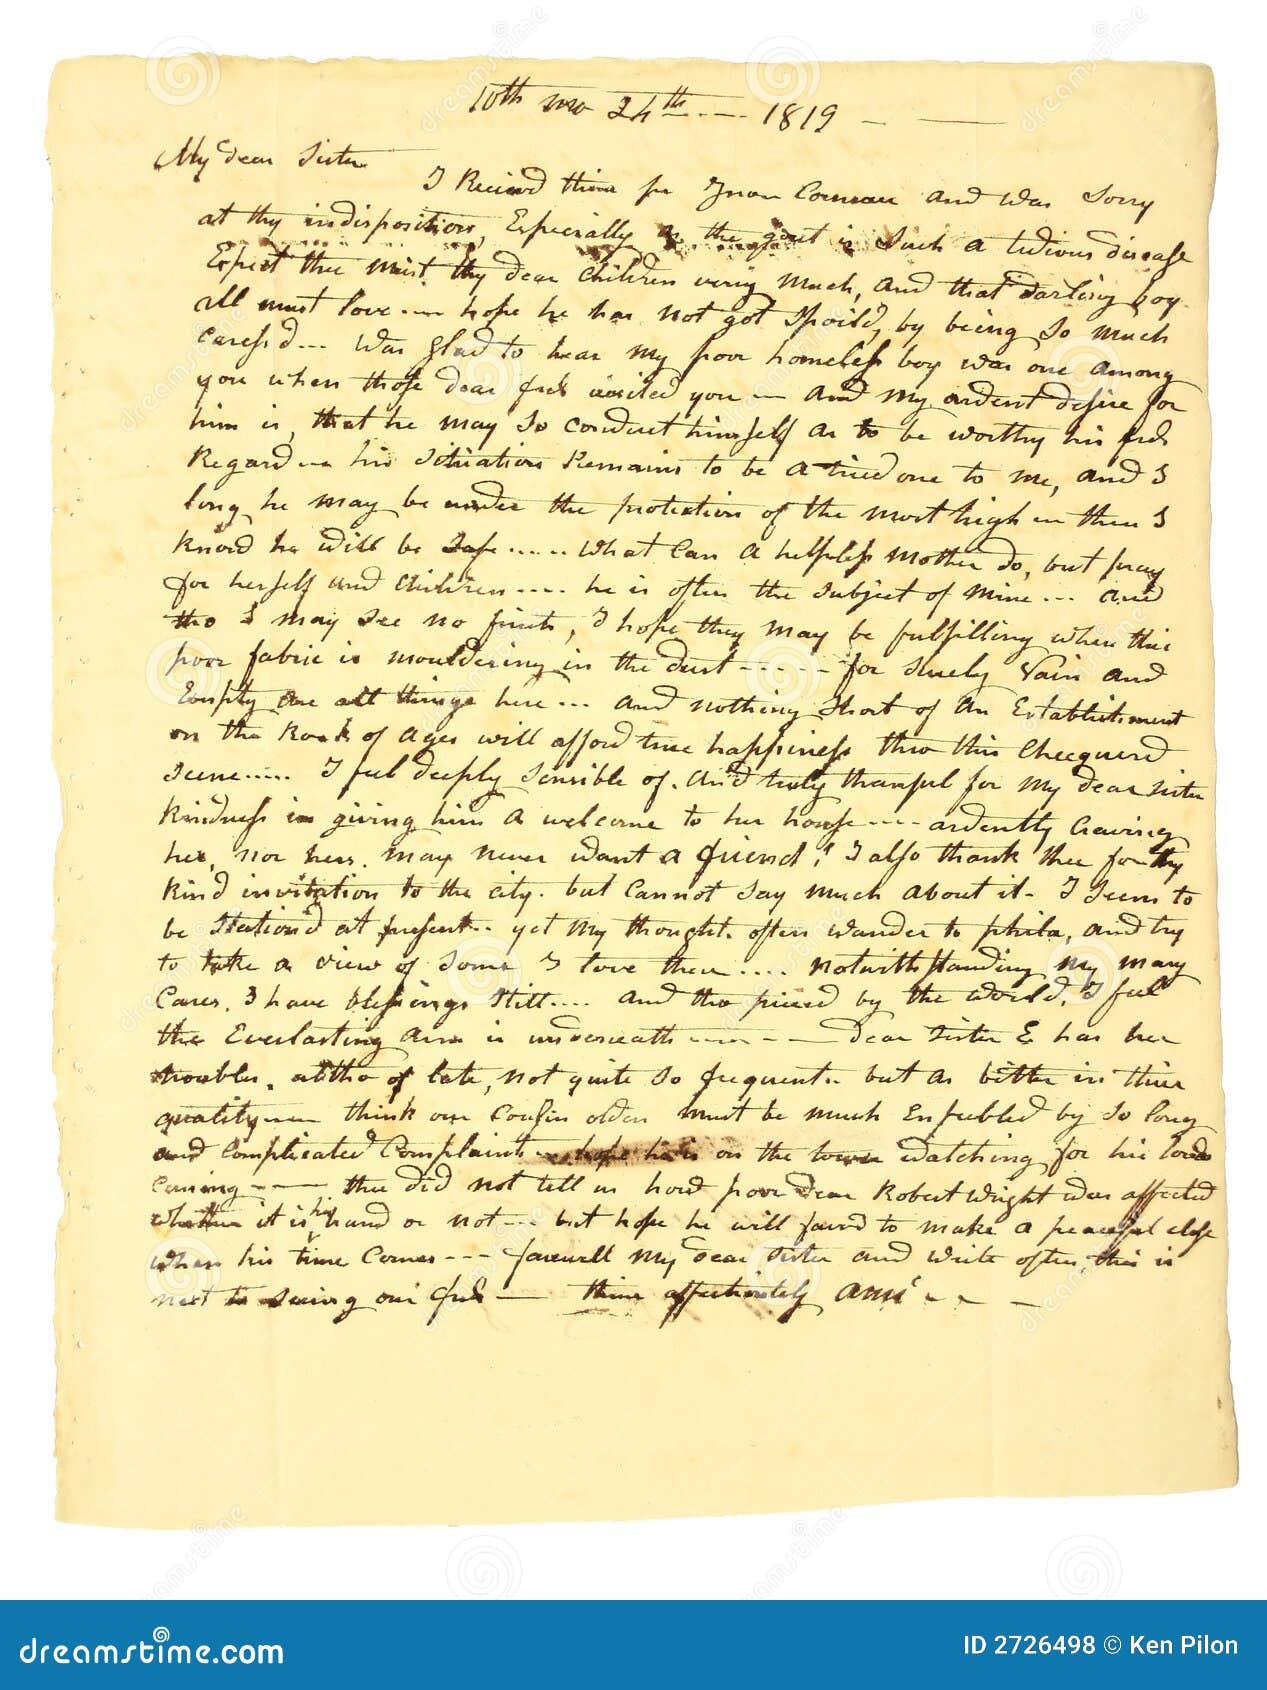 10th mo 24th 1819
My dear Sister
I Received thine per Comeau and was Sorry
at thy indisposition, Especially as the gout is Such a tedious disease
Expect thee mist thy dear Children very much, and that darling boy
all must love --- hope he has not got Spoil'd, by being So much
caress'd --- was glad to hear my poor homeless boy was one among
you when those dear frds visited you --- and my ardent desire for
him is, that he may So conduct himself as to be worthy his frds
Regard --- his Situation Remains to be a tried one to me, and I
long he may be under the protection of the most high --- then I
know he will be Safe ..... what Can a helpless Mother do, but pray
for herself and Children .... he is often the Subject of mine ... and
tho I may See no fruits, I hope they may be fulfilling when this
poor fabric is mouldering in the dust ------ for Surely Vain and
Empty are all things here ... and nothing Short of an Establishment
on the Rock of Ages will afford true happiness thro this Checquerd
Scene ..... I feel deeply Sensible of, and truly thankful for my dear Sister
Kindness in giving him a welcome to her house ---- ardently Craving
her, nor hers, may never want a friend! I also thank thee for thy
kind invitation to the city. but Cannot Say much about it - I Seem to
be Station'd at present .. yet my thoughts often wander to phila, and try
to take a view of Some I love there .... notwithstanding my many
Cares, I have blessings Still .... and tho by the world, I feel
the Everlasting arm is underneath ------ dear Sister E has her
troubles, altho of late, not quite So frequent .. but as bitter in their
quality --- think our Cousin must be much Enfeebled by So long
and Complicated Complaints --- hope he is on the tower watching for his lords
Coming ---- thee did not tell us how poor dear Robert Wright was affected
whether it is his hand or not --- but hope he will favor'd to make a peaceful close
when his time Comes --- farewell my dear Sister and write often, this is
next to Seeing our frds --- thine affectionately
dreamstime
dreamstime.com
ID 2726498 © Ken Pilon